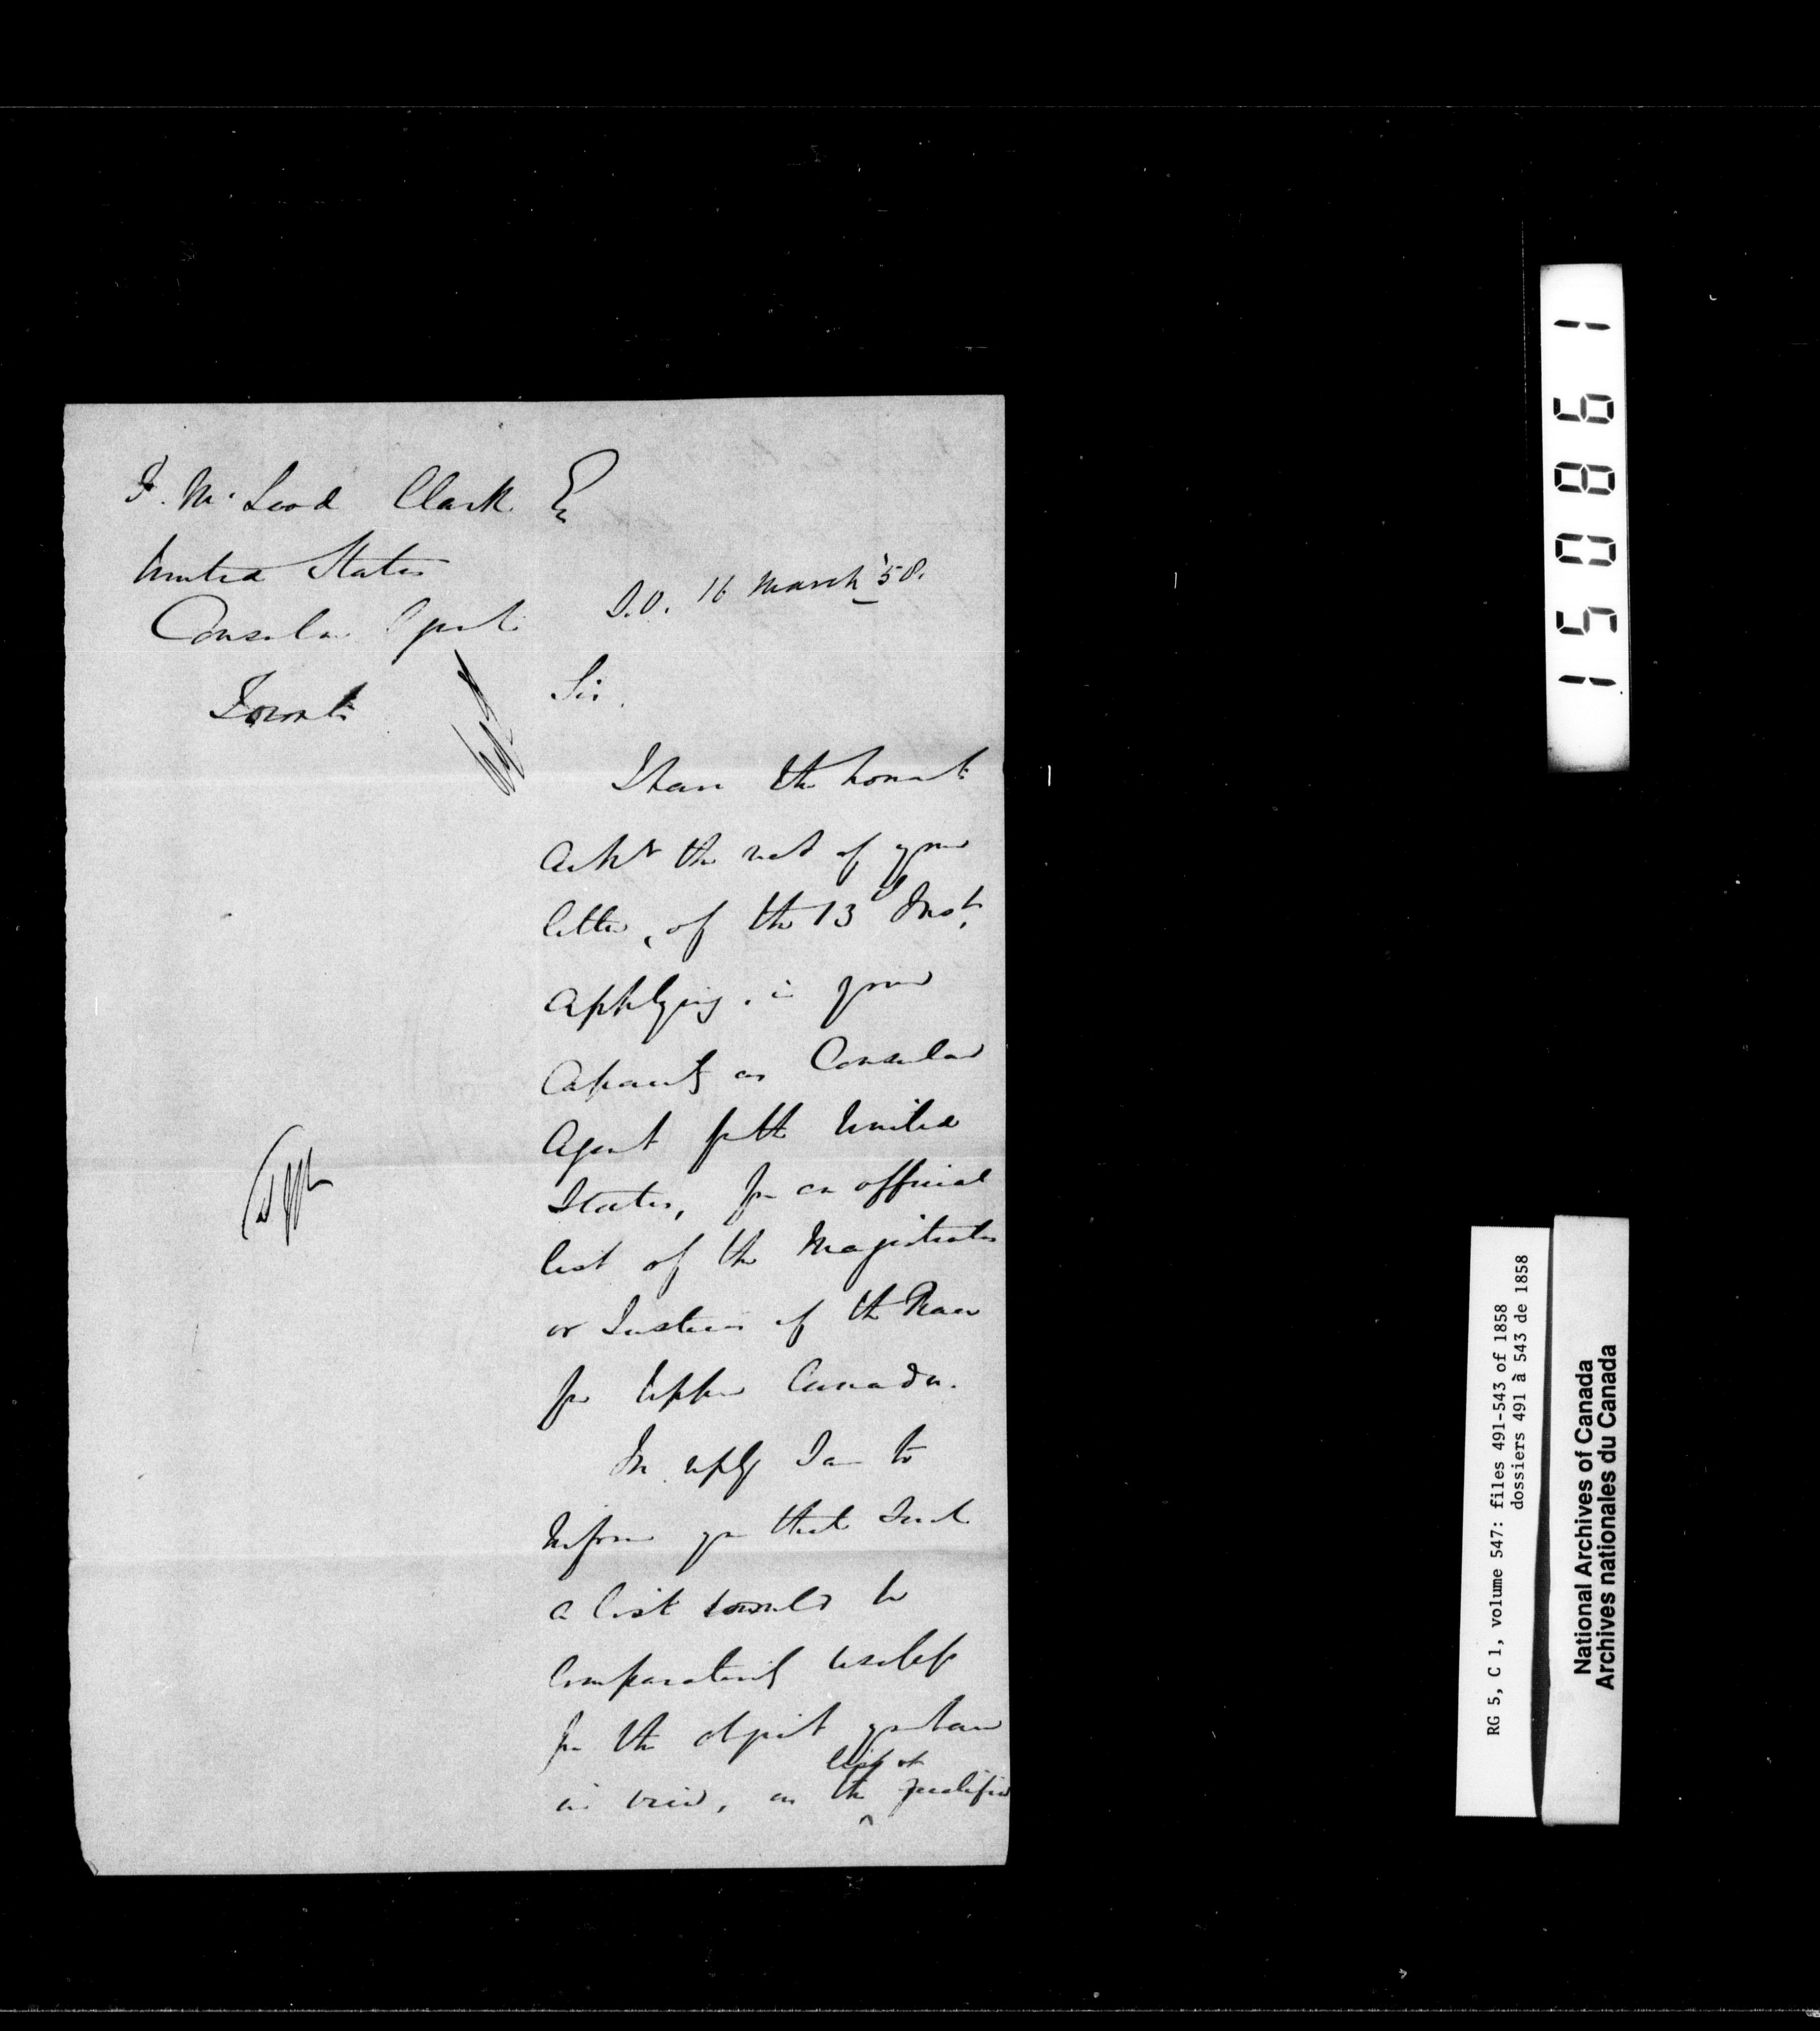 McLeod Clark Esq
United States
Consular Agent
Toronto
S.O. 16 March '58.
Sir.
I have the honor to
ackn the rect of your
letter, of the 13 Inst,
applying, in your
Capacity as Consular
Agent for the United
States, for an official
list of the Magistrates
or Justices of the Peace
for Upper Canada.
In reply I am to
inform you that such
a list would be
comparatively useless
for the object you have
in view, as the list of qualified
150861
RG 5, C 1, volume 547: files 491-543 of 1858
dossiers 491 à 543 de 1858
National Archives of Canada
Archives nationales du Canada